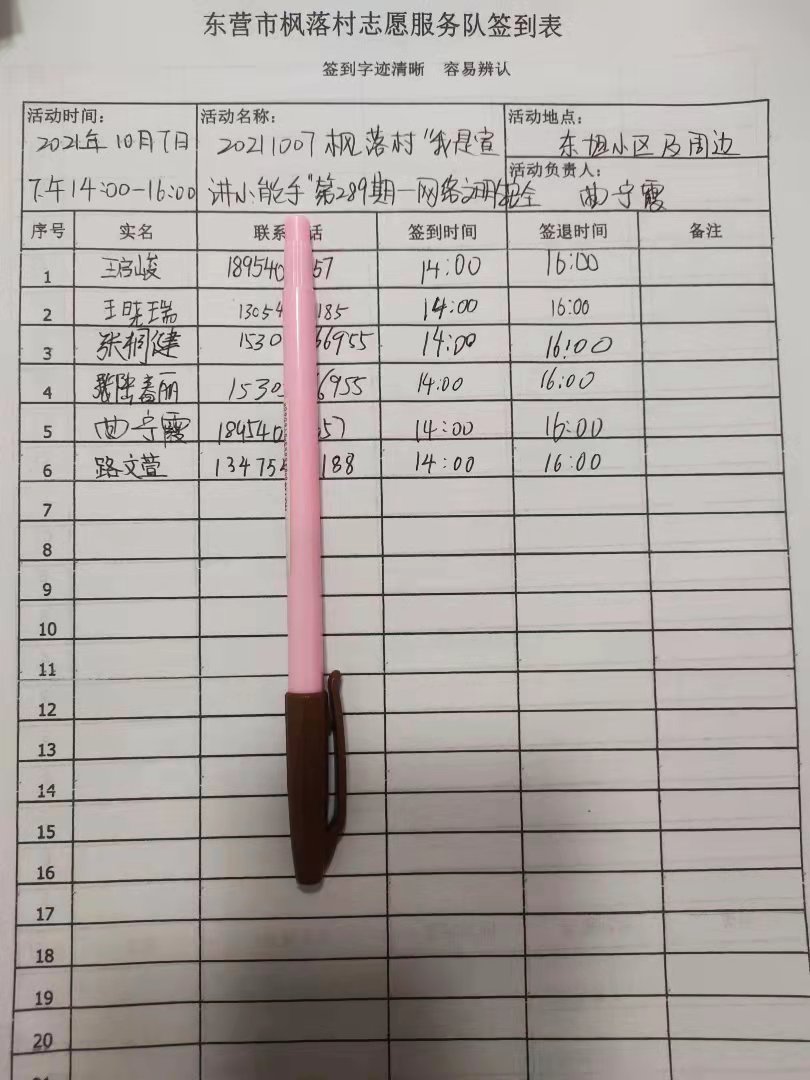 东营市枫落村志愿服务队签到表
签到字迹清晰 容易辨认
活动时间: 活动名称: 活动地点:
2021年10月7日 20211007枫落村"我是宣 东坦小区及周边
下午14:00-16:00 讲小能手"第289期—网络文明 安全 活动负责人: 曲宁霞
序号 实名 联系 话 签到时间 签退时间 备注
1 189540 57 14:00 16:00
2 王晓瑞 13054 185 14:00 16:00
3 张栩健 1530 66955 14:00 16:00
4 1530 6955 14:00 16:00
5 曲宁霞 189540 57 14:00 16:00
6 路文萱 13475 188 14:00 16:00
7
8
9
10
11
12
13
14
15
16
17
18
19
20